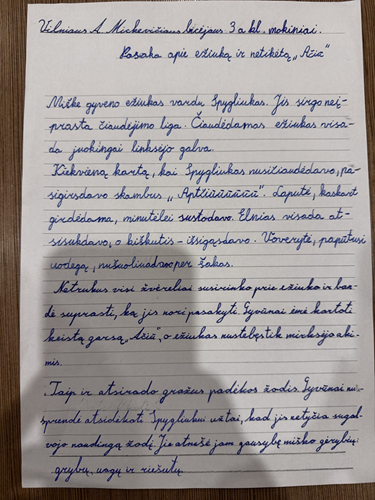 Vilniaus A. Mickevičiaus licėjaus 3 a kl. mokiniai.
Pasaka apie ežiuką ir netikėtą „Ačiū"
Miške gyveno ežiukas vardu Spygliukas. Jis sirgo neį-
prasta čiaudėjimo liga. Čiaudėdamas ežiukas visa-
da juokingai linksėjo galva.
Kiekvieną kartą, kai Spygliukas nusičiaudėdavo, pa-
sigirsdavo skambus „Aptčiūūūūūū". Laputė, kaskart
girdėdama, minutėlei sustodavo. Elnias visada at-
sisukdavo, o kiškutis – išsigąsdavo. Voverytė, papūtusi
uodegą, nušuoliuodavo per šakas.
Netrukus visi žvėreliai susirinko prie ežiuko ir ban-
dė suprasti, ką jis nori pasakyti. Gyvūnai ėmė kartoti
keistą garsą „Ačiū", o ežiukas nustebęs tik mirksėjo aki-
mis.
Taip ir atsirado gražus padėkos žodis. Gyvūnai nu-
sprendė atsidėkoti Spygliukui už tai, kad jis netyčia sugal-
vojo naudingą žodį. Jie atnešė jam gausybę miško gėrybių:
grybų, uogų ir riešutų.